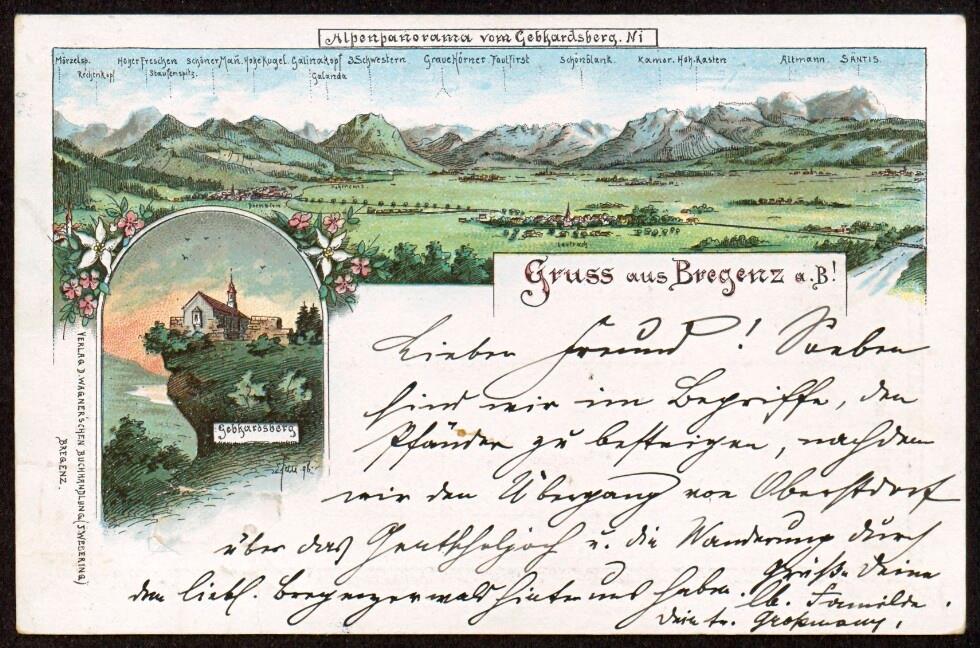 Alpenpanorama vom Gebhardsberg. Ni
Mörzelsp. Hoher Freschen Schöner Mañ. Hohe Kugel. Galinakopf 3 Schwestern Graue Hörner. Faulfirst Schönblank. Kamor. Hoh. Kasten Altmann. SÄNTIS.
Rechenkopf Staufenspitz. Galanda
Hohenems
Dornbirn
Lautrach
Gruss aus Bregenz a. B!
Gebhardsberg
VERLAG D. WAGNER'SCHEN BUCHHANDLUNG (J. WEGERING)
BREGENZ.
Lieber Freund! Soeben
sind wir im Begriffe, den
Pfänder zu besteigen, nachdem
wir den Übergang von Oberstdorf
über das Gentscheljoch u. die Wanderung durch
den liebl. Bregenzerwald hinter uns haben. Grüße Deine
lb. Familie.
Dein tr. Großmann.